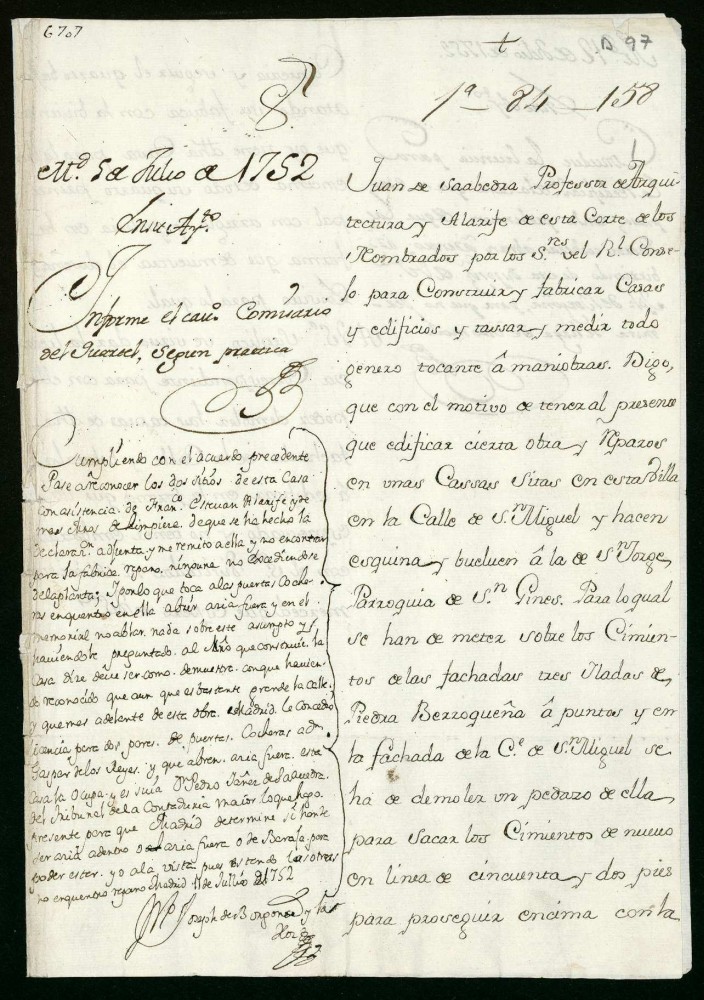 6707
D 97
1ª - 84 - 158
Md. 5 de Julio de 1752
En su Ayto
Informe el cavo. Comisario
del Quartel, segun practica
Juan de Saabedra Professor de Arqui-
tectura y Alarife de esta Corte de los
Nombrados por los Snes del Rl Conse-
lo para Construir y fabricar Casas
y edificios y tassar y medir todo
genero tocante â maniobras. Digo,
que con el motivo de tener al presente
que edificar cierta obra y Rparos
en unas Cassas Sitas en esta Villa
en la Calle de Sn Miguel y hacen
esquina y bueluen â la de Sn Jorge
Parroquia de Sn Gines. Para lo qual
se han de meter sobre los Cimien-
tos de las fachadas tres Iladas de
Piedra Berroqueña â puntas y en
la fachada de la Ce de Sn Miguel se
ha de demoler un pedazo de ella
para sacar los Cimientos de nuevo
en linea de cincuenta y dos pies
para proseguir encima con la
Cumpliendo con el acuerdo precedente
Pase a reconocer los dos sitios de esta Casa
con asistencia de Franco Estevan Alarife y de
mas de limpieza de que se ha hecho la
Declararn adjunta y me remito a ella y no encontrar
para la fabrica reparo ninguno no excediendose
de la planta; y por lo que toca a las puertas Coche-
ras enquentro en ella abrir acia fuera y en el
memorial no ablar nada sobre este asumpto y
haviendole preguntado al Mro que construie la
Casa dize deve ser como demuestra conque havien-
do reconocido que aun que es bastante grande la Calle
y que mas adelante de esta obra Madrid le Concedio
licencia para dos pares de puertas Cocheras a dn
Gaspar de los Reyes y que abren acia fuera este
Casa la Ocupa y es suia Dn Pedro Yañez de Saavedra
del Tribunal de la Contaduria maior lo que hago
Presente para que Madrid determine si han de
ser acia adentro o acia fuera o de Baraja para
poder ester yo a la vista pues estando las otras
no enquentro reparo Madrid 11 de Jullio de 1752
Joseph de